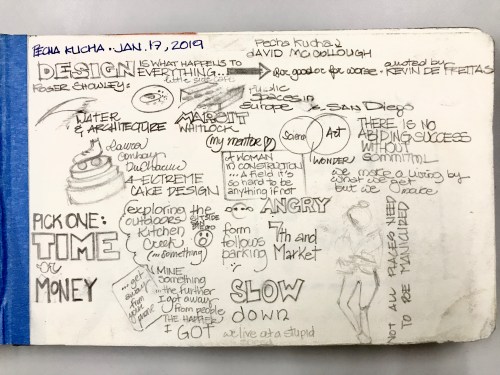 PECHA KUCHA · JAN. 17, 2019
Pecha Kucha 2
DAVID MCCOLLOUGH
DESIGN IS WHAT HAPPENS TO
EVERYTHING...
For good or for worse.
- quoted by
KEVIN DE FREITAS
ROGER SHOWLEY:
Public
Spaces in
Europe & SAN DIEGO
WATER
& ARCHITECTURE
MARGIT
WHITLOCK
(my mentor ♡)
Science
Art
WONDER
THERE IS NO
ABIDING SUCCESS
WITHOUT
COMMITMENT
we make a living by
what we get
but we
Laura
DuCharme
4 EXTREME
CAKE DESIGN
A WOMAN
IN CONSTRUCTION
... a field it's
so hard to be
anything if not
ANGRY
PICK ONE:
TIME
or
MONEY
exploring the
outdoors
OUTSIDE
SAN DIEGO
Kitchen
Creek
(or something)
form
follows
parking
7th and
Market
... get
away
from
your
phone
MINE
Something
... the further
I got away
from people
THE HAPPIER
I GOT
SLOW
down
we live at a stupid
NOT ALL PLACES NEED
TO BE MANICURED